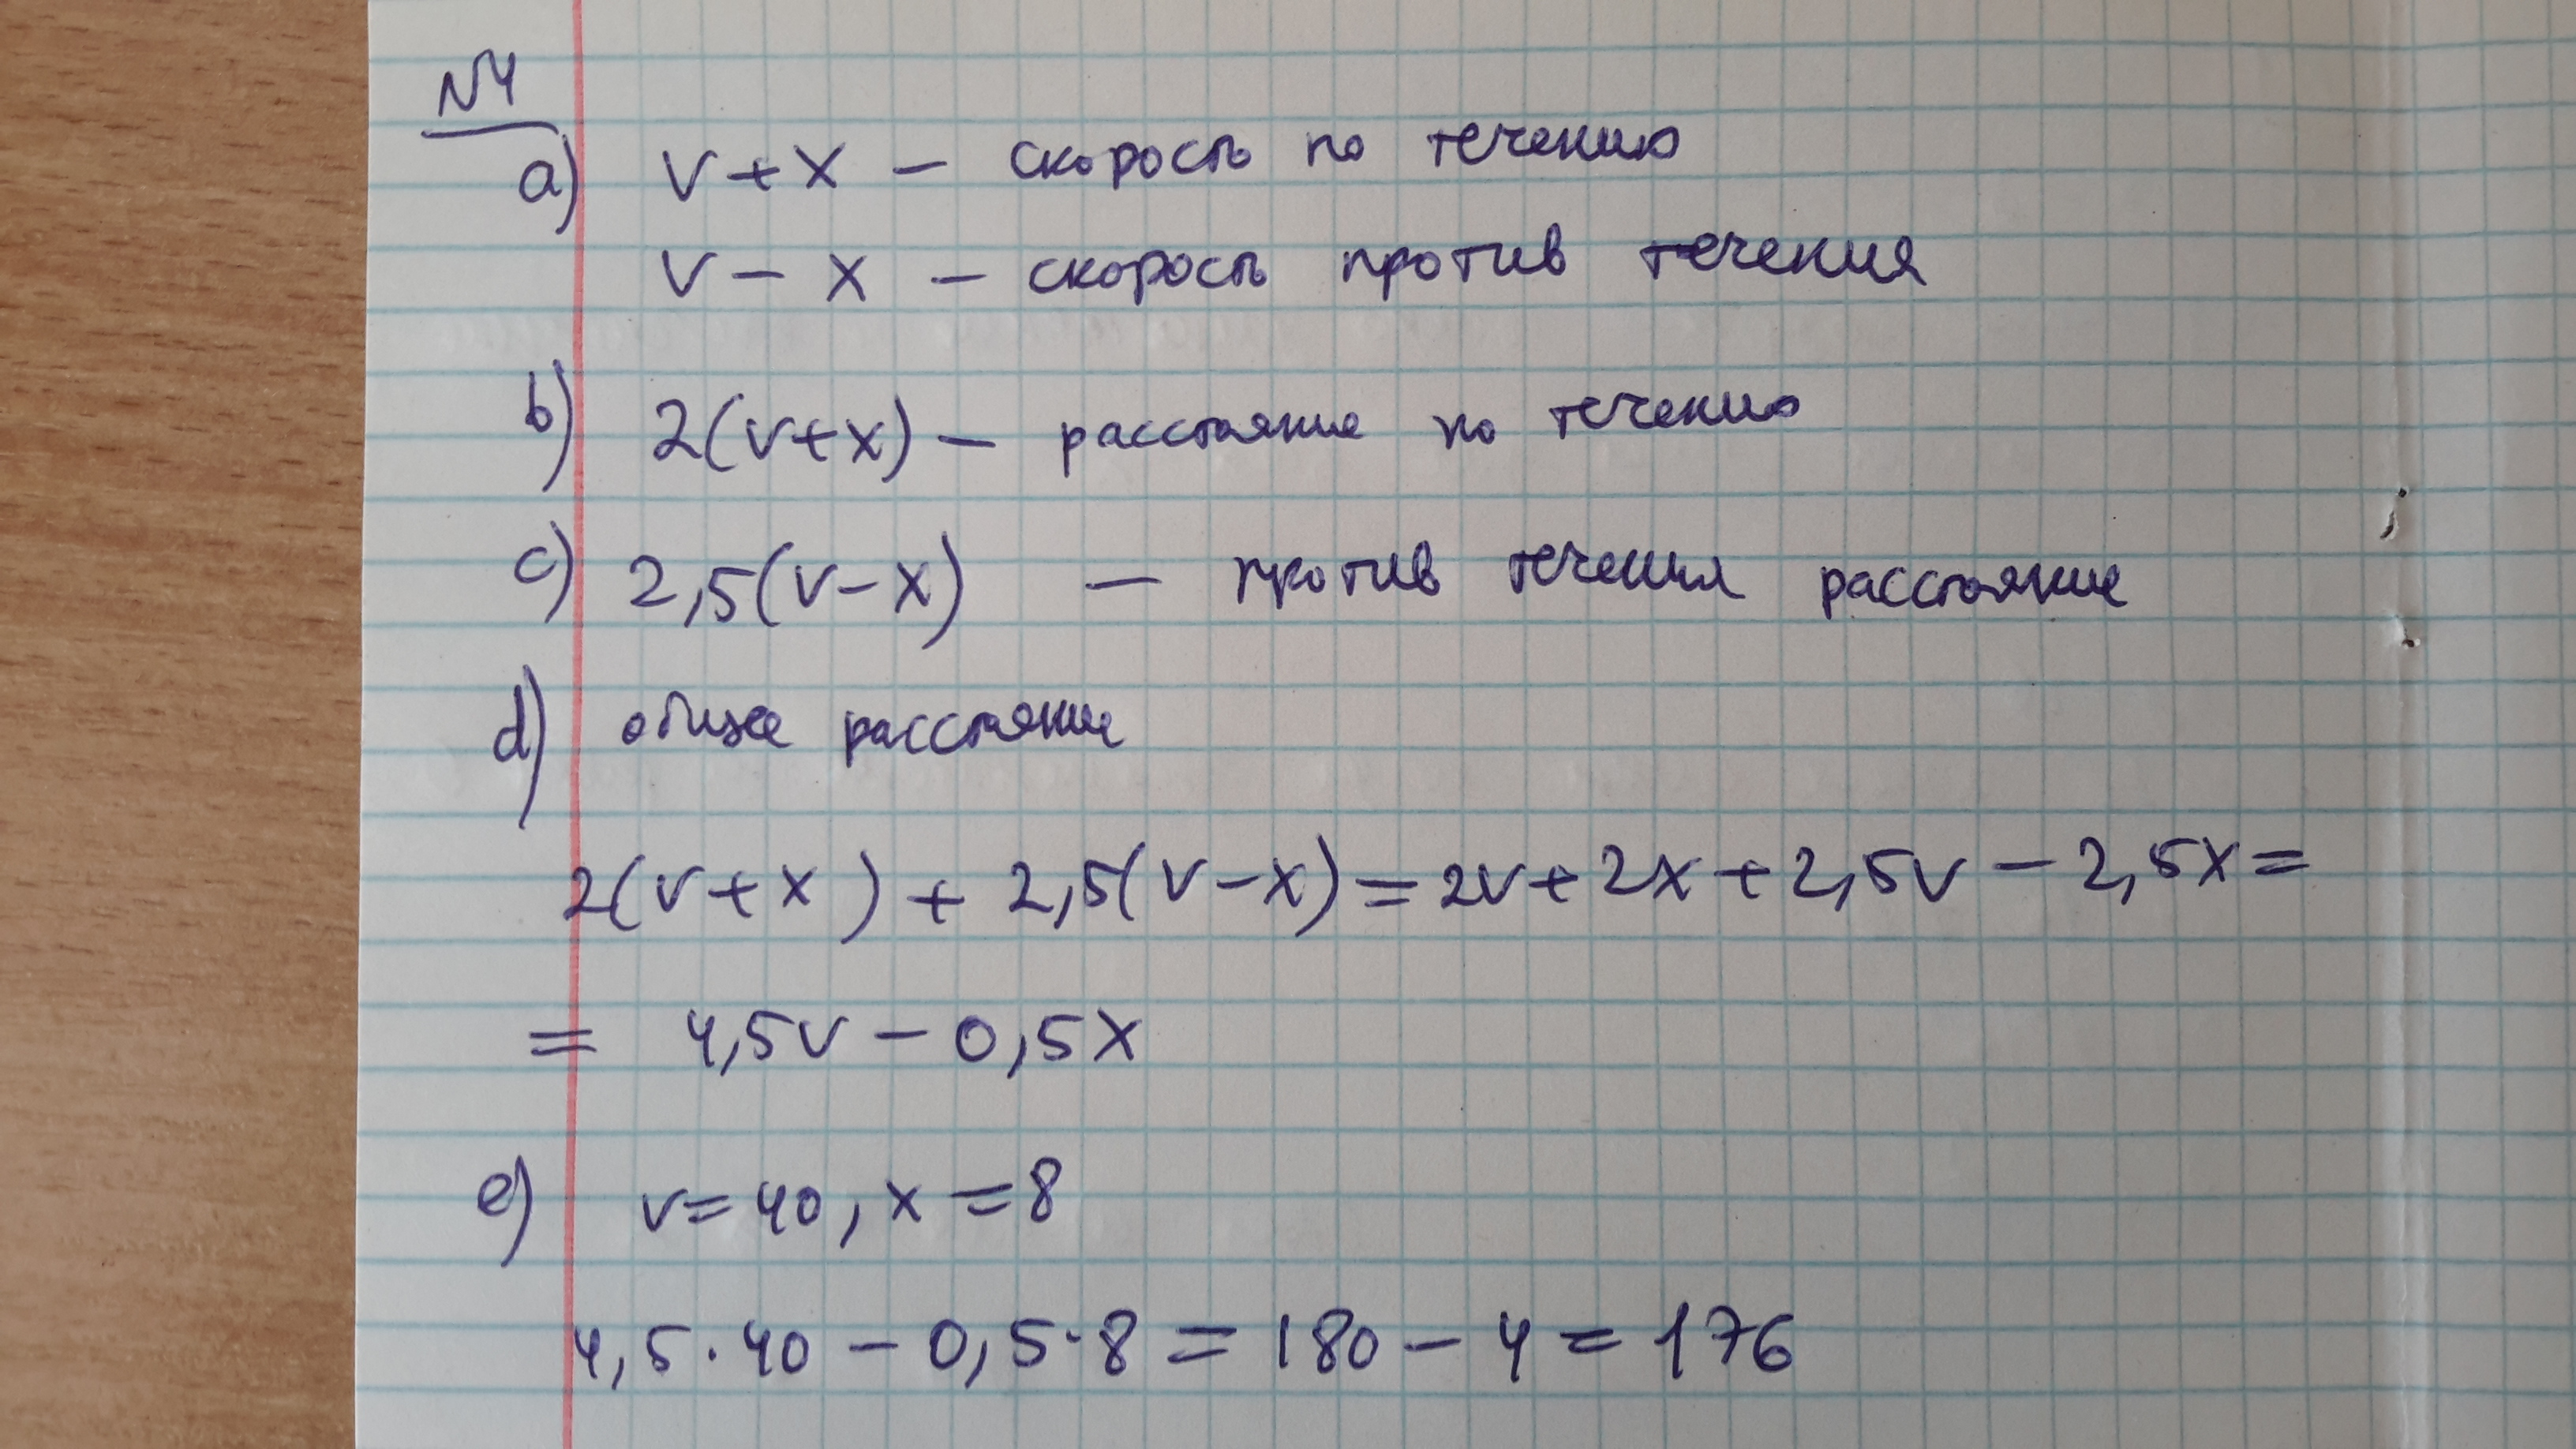 N4
a) v + x – скорость по течению
v – x – скорость против течения
b) 2(v+x) – расстояние по течению
c) 2,5(v–x) – против течения расстояние
d) общее расстояние
2(v+x) + 2,5(v–x) = 2v + 2x + 2,5v – 2,5x =
= 4,5v – 0,5x
e) v = 40, x = 8
4,5·40 – 0,5·8 = 180 – 4 = 176